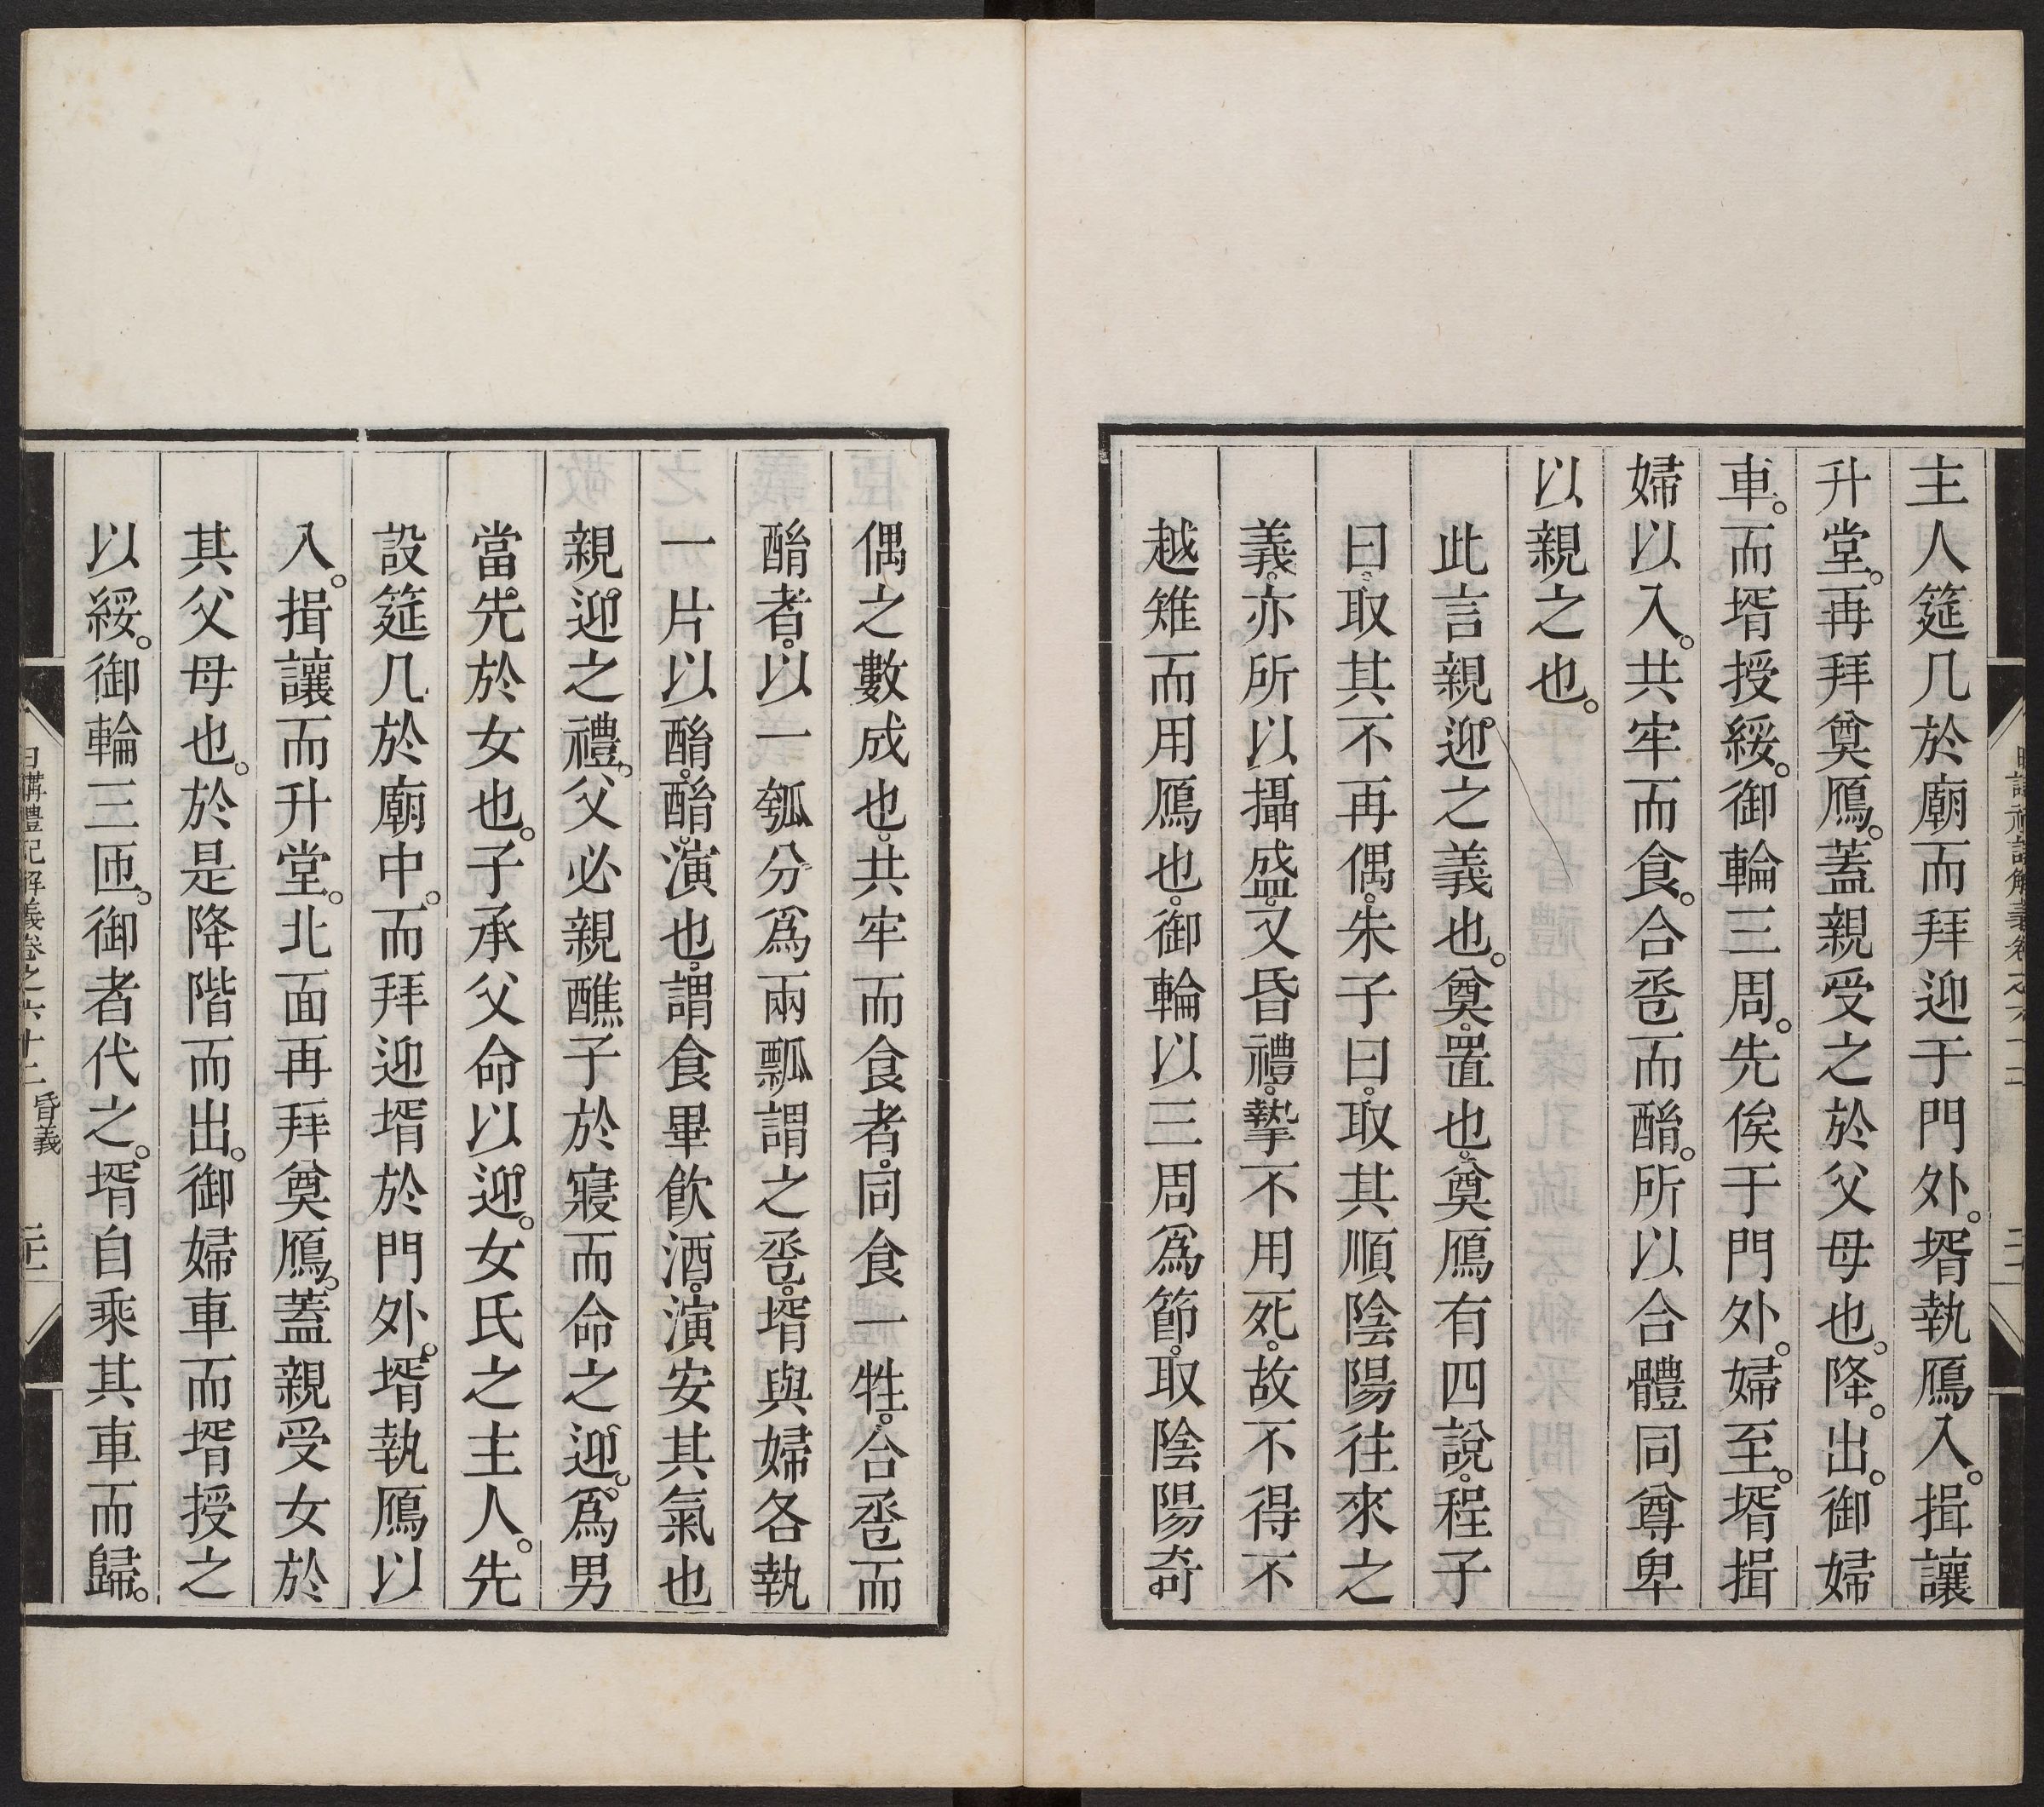 主人筵几於廟而拜迎于門外。壻執鴈入。揖讓
升堂。再拜奠鴈。蓋親受之於父母也。降。出。御婦
車。而壻授綏。御輪三周。先俟于門外。婦至。壻揖
婦以入。共牢而食。合巹而酳。所以合體同尊卑
以親之也。
此言親迎之義也。奠。置也。奠鴈有四說。程子
曰。取其不再偶。朱子曰。取其順陰陽往來之
義。亦所以攝盛。又昏禮。摯不用死。故不得不
越雉而用鴈也。御輪以三周爲節。取陰陽奇
偶之數成也。共牢而食者。同食一牲。合巹而
酳者。以一瓠分爲兩瓢謂之巹。壻與婦各執
一片以酳。酳。演也。謂食畢飮酒。演安其氣也
親迎之禮。父必親醮子於寢而命之迎。爲男
當先於女也。子承父命以迎。女氏之主人。先
設筵几於廟中。而拜迎壻於門外。壻執鴈以
入。揖讓而升堂。北面再拜奠鴈。蓋親受女於
其父母也。於是降階而出。御婦車而壻授之
以綏。御輪三匝。御者代之。壻自乘其車而歸。
日講禮記解義卷之六十二 昏義